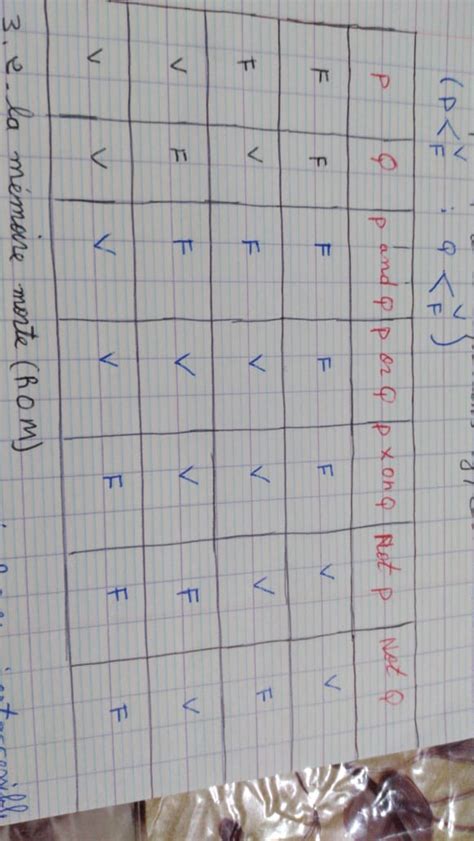 (P < V F ; Q < V F )
P Q P and Q P or Q P xor Q Not P Not Q
F F F F F V V
F V F V V V F
V F F V V F V
V V V V F F F
3.2-La mémoire morte (ROM)